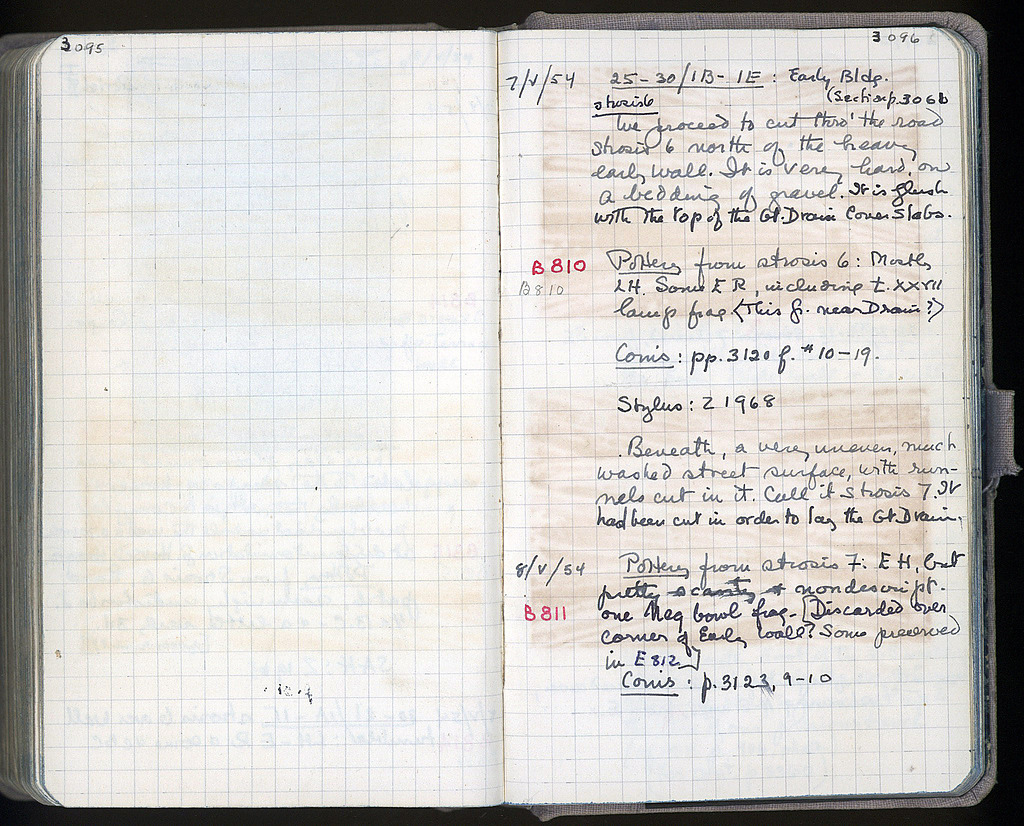 3095
3096
7/V/54 25-30/1B-1E: Early Bldg.
(Section p. 3066
strosis 6
We proceed to cut thro' the road
strosis 6 north of the heavy
early wall. It is very hard, on
a bedding of gravel. It is flush
with the top of the Gt. Drain Cover Slabs.
B 810 Pottery from strosis 6: Mostly
B 810 LH. Some ER, including t. XXVII
lamp frag. (This fr. near Drain?)
Coins: pp. 3120 f. #10-19.
Stylus: Z 1968
Beneath, a very uneven, much
washed street surface, with run-
nels cut in it. Call it Strosis 7. It
had been cut in order to lay the Gt. Drain.
8/V/54 Pottery from strosis 7: EH, but
pretty scanty nondescript.
B 811 one Meg bowl frag. [Discarded over
corner of Early wall? Some preserved
in E 812]
Coins: p. 3123, 9-10